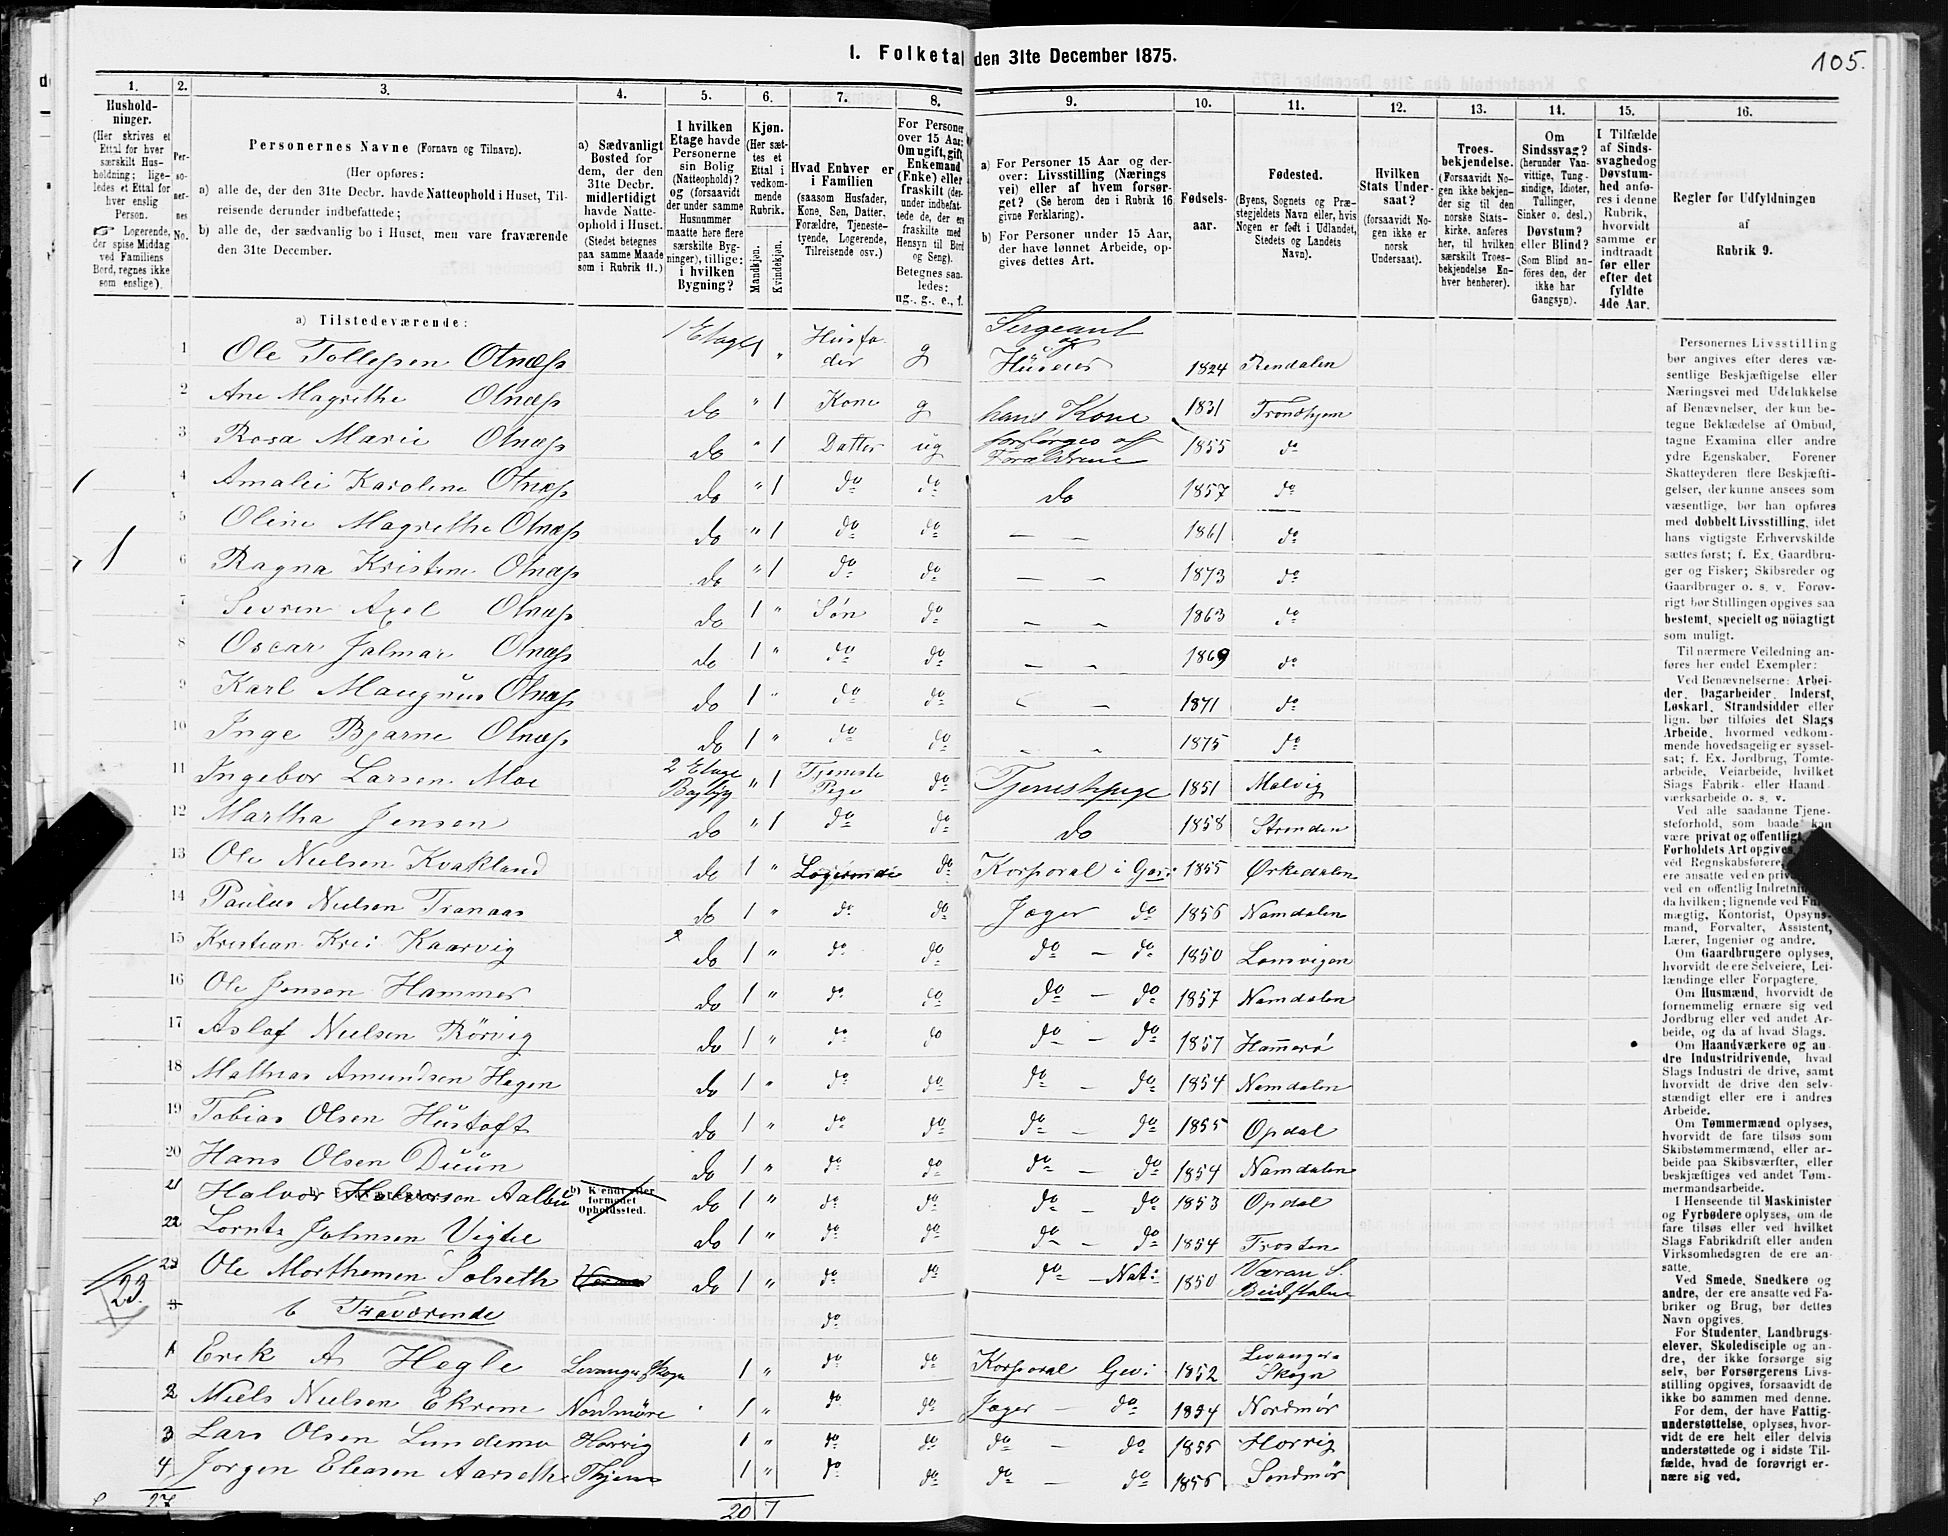 I. Folketal den 31te December 1875.
105.
1. 2. 3. 4. 5. 6. 7. 8. 9. 10. 11. 12. 13. 14. 15. 16.
Hushold-
ninger.
(Her skrives et
Ettal for hver
særskilt Hus-
holdning; lige-
ledes et Ettal for
hver enslig
Person.
☞ Logerende,
der spise Middag
ved Familiens
Bord, regnes ikke
som enslige).
Per-
so-
ner-
nes
No.
Personernes Navne (Fornavn og Tilnavn).
(Her opføres:
a) alle de, der den 31te Decbr. havde Natteophold i Huset, Til-
reisende derunder indbefattede;
b) alle de, der sædvanlig bo i Huset, men vare fraværende
den 31te December.
a) Sædvanligt
Bosted for
dem, der den
31te Decbr.
midlertidigt
havde Natte-
ophold i Huset.
(Stedet betegnes
paa samme Maade
som i Rubrik 11.)
I hvilken
Etage havde
Personerne
sin Bolig
(Natteophold)?
og (forsaavidt
der under samme
Husnummer
maatte høre flere
særskilte Byg-
ninger), tillige:
i hvilken
Bygning?
Kjøn.
(Her sæt-
tes et
Ettal i
vedkom-
mende
Rubrik.
Mandkjøn.
Kvindekjøn.
Hvad Enhver er
i Familien
(saasom Husfader,
Kone, Søn, Datter,
Forældre, Tjeneste-
tyende, Logerende,
Tilreisende osv.)
For Personer
over 15 Aar:
Om ugift, gift,
Enkemand
(Enke) eller
fraskilt (der-
under indbefat-
tede de, der ere
fraskilte med
Hensyn til Bord
og Seng).
Betegnes saa-
ledes:
ug., g., e., f.
a) For Personer 15 Aar og der-
over: Livsstilling (Nærings
vei) eller af hvem forsør-
get? (Se herom den i Rubrik 16
givne Forklaring).
b) For Personer under 15 Aar,
der have lønnet Arbeide, op-
gives dettes Art.
Fødsels-
aar.
Fødested.
(Byens, Sognets og Præ-
stegjeldets Navn eller, hvis
Nogen er født i Udlandet,
Stedets og Landets
Navn).
Hvilken
Stats Under-
saat?
(forsaavidt No-
gen ikke er
norsk
Undersaat).
Troes-
bekjendelse.
(Forsaavidt No-
gen ikke bekjen-
der sig til den
norske Stats-
kirke, anføres
her, til hvilken
særskilt Troes-
bekjendelse En-
hver henhører).
Om
Sindssvag?
(herunder Van-
vittige, Tung-
sindige, Idioter,
Tullinger,
Sinker o. desl.)
Døvstum?
eller Blind?
(Som Blind an-
føres den, der
ikke har
Gangsyn).
I Tilfælde
af Sinds-
svaghed og
Døvstum-
hed anfø-
res i denne
Rubrik,
hvorvidt
samme er
indtraadt
før eller
efter det
fyldte
4de Aar.
Regler for Udfyldningen
af
Rubrik 9.
a) Tilstedeværende:
1 Ole Tollefsen Otnæss 1 Etage 1 " Husfader g Sergeant og Huseier 1824 Rendalen
2 Ane Magrethe Otnæss do " 1 Kone g hans Kone 1831 Trondhjem
3 Rosa Marie Otnæss do " 1 Datter ug forsørges af Forældrene 1855 do
4 Amalie Karoline Otnæss do " 1 do do do 1857 do
5 Oline Magrethe Otnæss do " 1 do do — — 1861 do
6 Ragna Kristine Otnæss do " 1 do do — — 1873 do
7 Sevren Axel Otnæss do 1 " Søn do — — 1863 do
8 Oscar Jalmar Otnæss do 1 " do do — — 1869 do
9 Karl Maugnus Otnæss do 1 " do do — — 1871 do
10 Inge Bjarne Otnæss do 1 " do do — — 1875 do
11 Ingebor Larsen Moe 2 Etage Bagbyg " 1 Tjeneste Pige do Tjenestpige 1851 Malvig
12 Martha Jensen do " 1 do do do 1858 Strinden
13 Ole Nielsen Kvakland do 1 " Logerende do Korporal i Gev: 1855 Ørkedalen
14 Paulus Nielsen Tranaas do 1 " do do Jæger do 1856 Namdalen
15 Kristian Krei Kaarvig 2 do 1 " do do do — do 1850 Lomvigen
16 Ole Jensen Hammer do 1 " do do do — do 1857 Namdalen
17 Aslaf Nielsen Rörvig do 1 " do do do — do 1857 Hammerö
18 Mathias Amundsen Hagen do 1 " do do do — do 1854 Namdalen
19 Tobias Olsen Hustoft do 1 " do do do — do 1855 Opdal
20 Hans Olsen Duun do 1 " do do do — do 1854 Namdalen
b) Kendt eller
formodet
Opholdssted.
21 Halvor Halvorsen Aalbu do 1 " do do do — do 1853 Opdal
22 Lornts Johnsen Vigtil do 1 " do do do — do 1854 Frosten
23 Ole Morthensen Solseth do 1 " do do do — Nat: 1850 Væran S. Beidstaden
b Fraværende do
1 Erik A Hegle Levanger Skogn 1 " do do Korporal Gev: 1852 Levanger Skogn
2 Niels Nielsen Ekrem Nordmöre 1 " do do Jæger — do 1854 Nordmør
3 Lars Olsen Lundemo Horrig 1 " do do do — do 1855 Horrig
4 Jørgen Eleasen Aarseth Thjem 1 " do do do — do 1856 Søndmør
1
23.
27
20 7
Personernes Livsstilling
bør angives efter deres væ-
sentlige Beskjæftigelse eller
Næringsvei med Udelukkelse
af Benævnelser, der kun be-
tegne Beklædelse af Ombud,
tagne Examina eller andre
ydre Egenskaber. Forener
Skatteyderen flere Beskjæfti-
gelser, der kunne ansees som
væsentlige, bør han opføres
med dobbelt Livsstilling, idet
hans vigtigste Erhvervskilde
sættes først; f. Ex. Gaardbru-
ger og Fisker; Skibsreder og
Gaardbruger o. s. v. Forøv-
rigt bør Stillingen opgives saa
bestemt, specielt og nöiagtigt
som muligt.
Til nærmere Veiledning an-
føres her endel Exempler:
Ved Benævnelserne: Arbei-
der, Dagarbeider, Inderst,
Løskarl, Strandsidder eller
lign. bør tilføies det Slags
Arbeide, hvormed vedkom-
mende hovedsagelig er syssel-
sat; f. Ex. Jordbrug, Tomte-
arbeide, Veiarbeide, hvilket
Slags Fabrik- eller Haand-
værksarbeide o. s. v.
Ved alle saadanne Tjene-
steforhold, som baade kan
være privat og offentligt,
Forholdets Art opgives,
ved Regnskabsførere,
ere ansatte ved en
ved en offentlig Indretning,
da hvilken; lignende ved
mægtig, Kontorist, Opsyns-
mand, Forvalter, Assistent,
Lærer, Ingeniør og andre.
Om Gaardbrugere oplyses,
hvorvidt de ere Selveiere, Lei-
lændinge eller Forpagtere.
Om Husmænd, hvorvidt de
fornemmelig ernære sig ved
Jordbrug eller ved andet Ar-
beide, og da af hvad Slags.
Om Haandværkere og an-
dre Industridrivende, hvad
Slags Industri de drive, samt
hvorvidt de drive den selv-
stændigt eller ere i andres
Arbeide.
Om Tømmermænd oplyses,
hvorvidt de fare tilsøs som
Skibstømmermænd, eller ar-
beide paa Skibsværfter, eller
beskjæftiges ved andet Tøm-
mermandsarbeide.
I Henseende til Maskinister
og Fyrbødere oplyses, om de
fare tilsøs eller ved hvilket
Slags Fabrikdrift eller anden
Virksomhedsgren de ere an-
satte.
Ved Smede, Snedkere og
andre, der ere ansatte ved Fa-
briker og Brug, bør dettes
Navn opgives.
For Studenter, Landbrugs-
elever, Skoledisciple og an-
dre, der ikke forsørge sig
selv, bør Forsørgerens Livs-
stilling opgives, forsaavidt de
ikke bo sammen med denne.
For dem, der have Fattig-
understøttelse, oplyses, hvor-
vidt de ere helt eller delvis
understøttede og i sidste Til-
fælde, hvad de forøvrigt er-
nære sig ved.